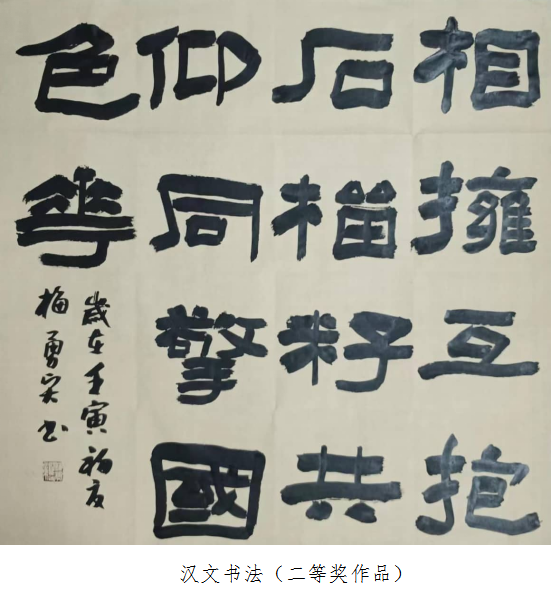 相擁互抱
石榴籽共
仰同擎國
色華
歲在壬寅初夏
梅勇书
汉文书法（二等奖作品）